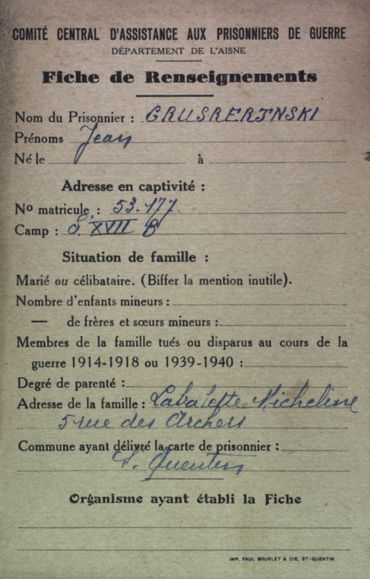 COMITÉ CENTRAL D'ASSISTANCE AUX PRISONNIERS DE GUERRE
DÉPARTEMENT DE L'AISNE
Fiche de Renseignements
Nom du Prisonnier : GRUSRERINSKI
Prénoms Jean
Né le à
Adresse en captivité :
No matricule : 53.177
Camp : O XVII B
Situation de famille :
Marié ou célibataire. (Biffer la mention inutile).
Nombre d'enfants mineurs :
— de frères et sœurs mineurs :
Membres de la famille tués ou disparus au cours de la
guerre 1914-1918 ou 1939-1940 :
Degré de parenté :
Adresse de la famille : Labalette Micheline
5 rue des Archers
Commune ayant délivré la carte de prisonnier :
S. Quentin
Organisme ayant établi la Fiche
IMP. PAUL BOURLET & CIE, ST-QUENTIN